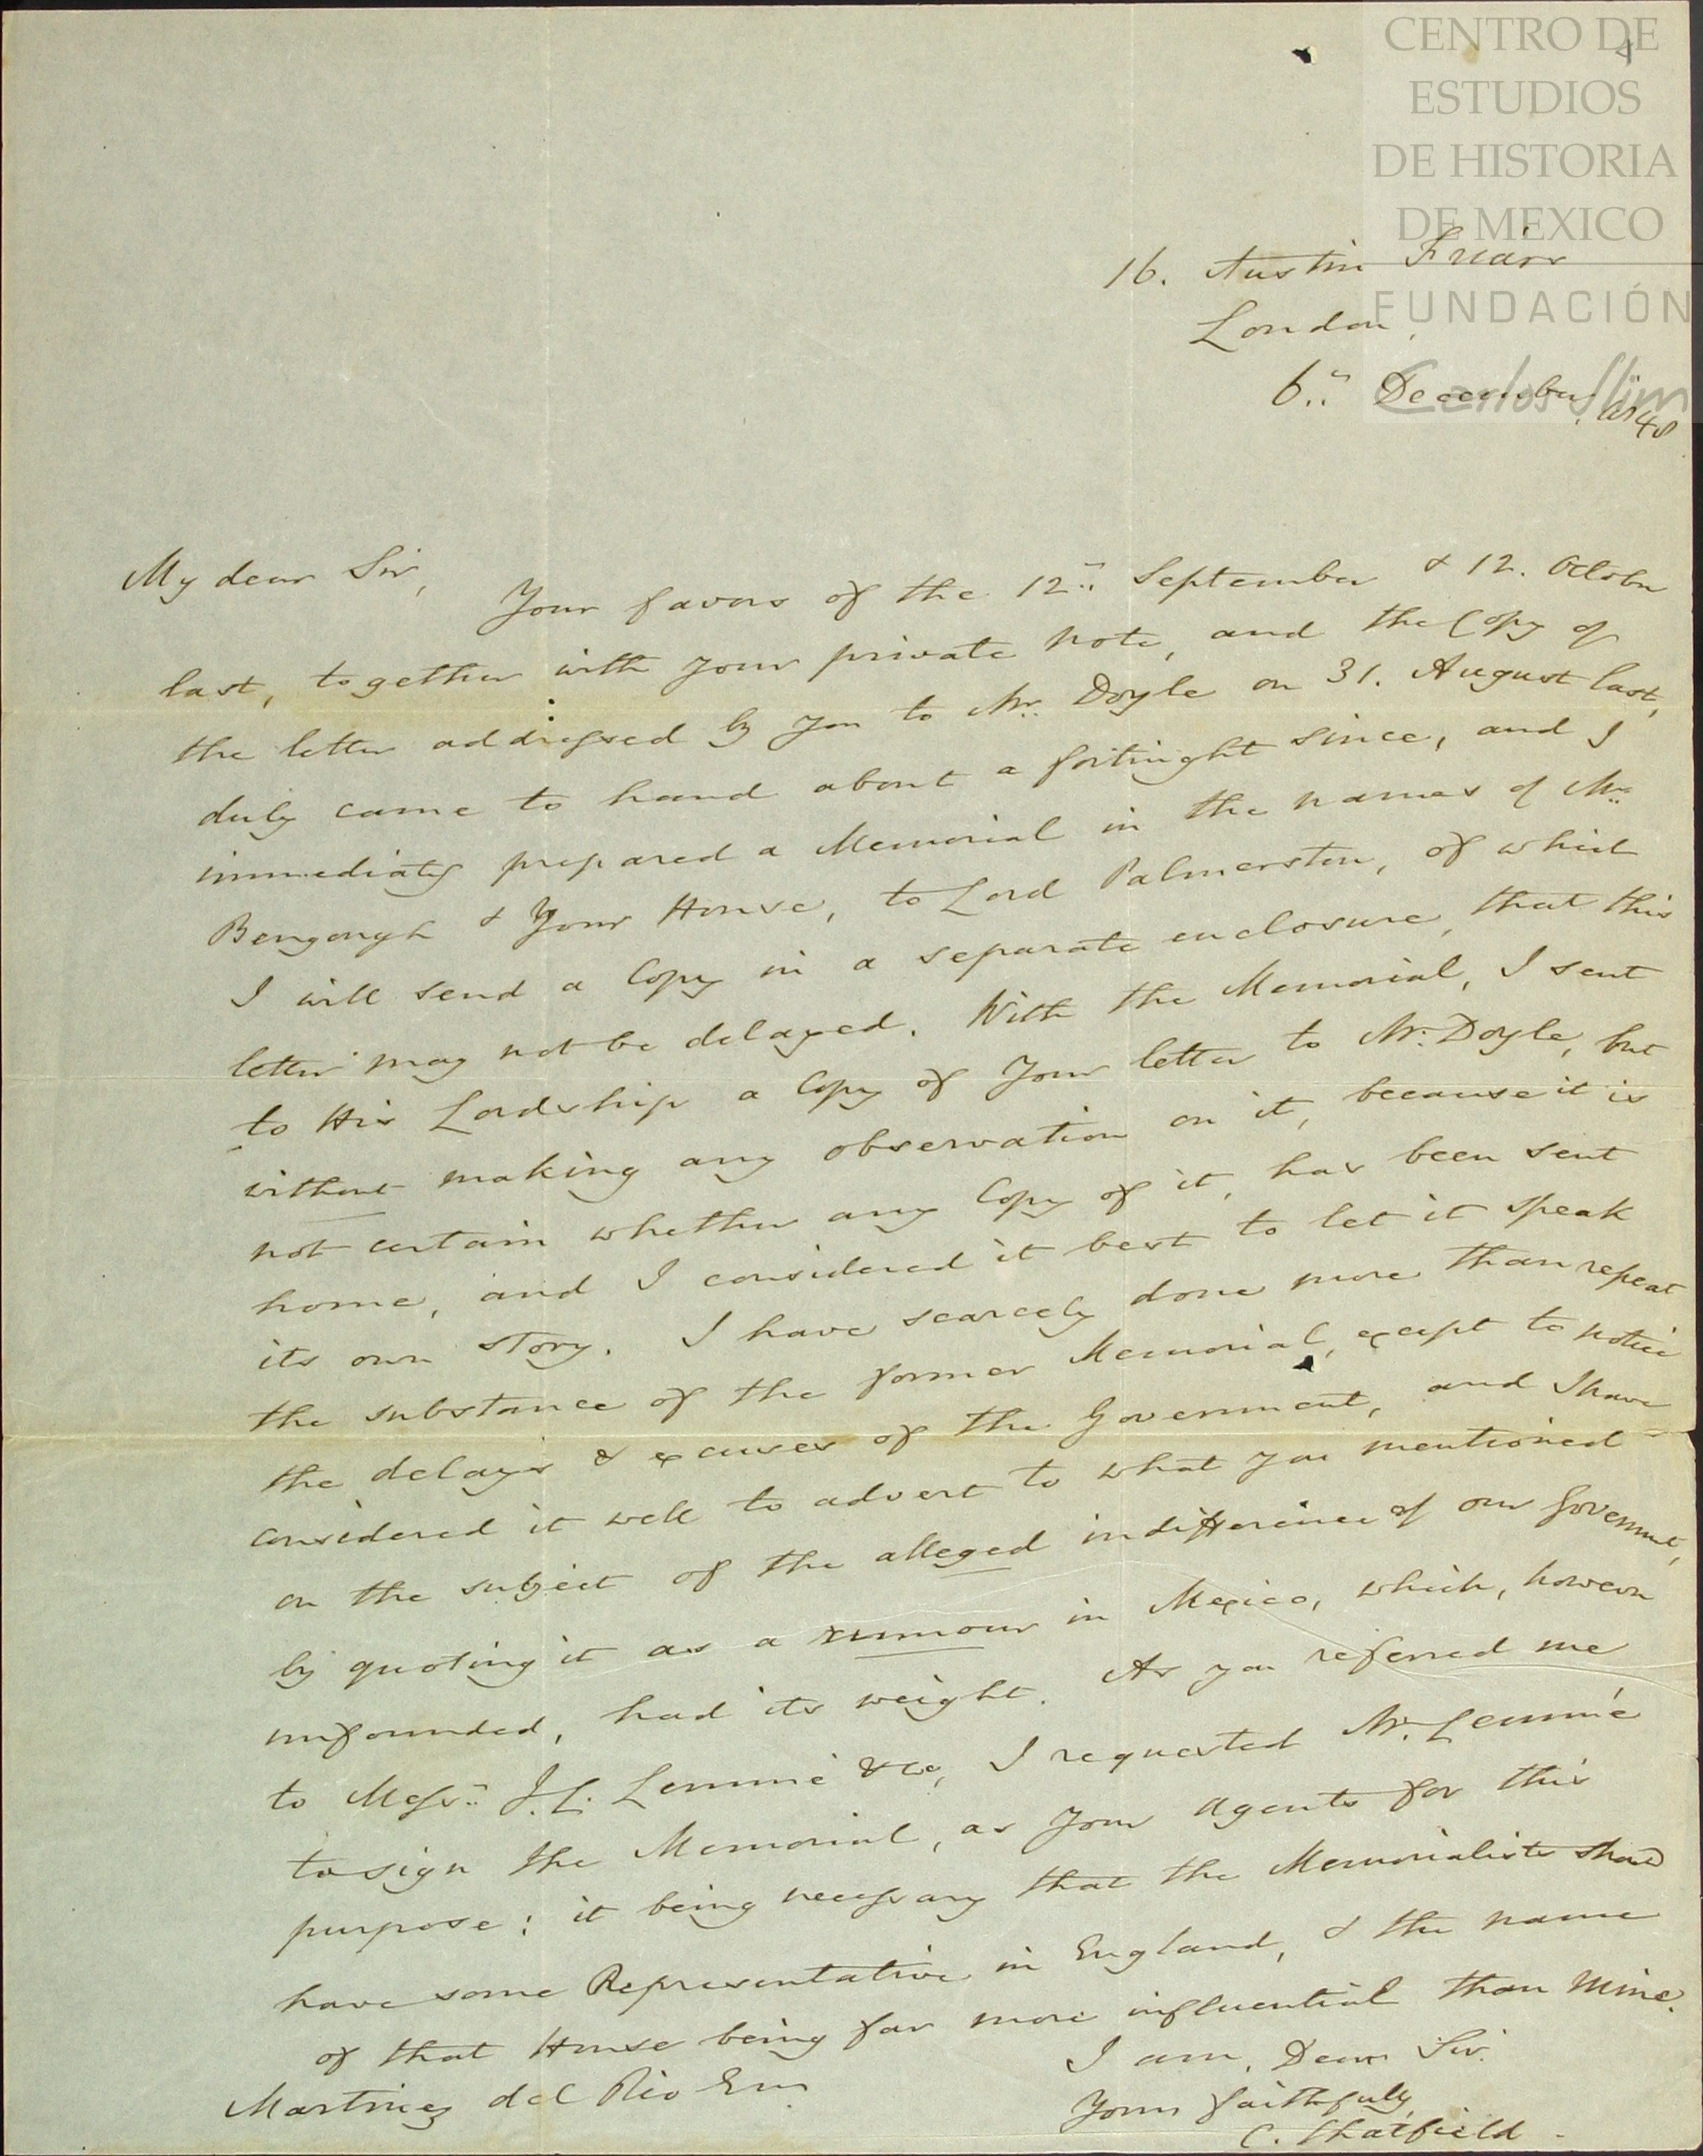 CENTRO DE
ESTUDIOS
DE HISTORIA
DE MEXICO
FUNDACIÓN
Carlos Slim
16. Austin Friars
London,
6.. December, 1848
My dear Sir,
Your favors of the 12.. September & 12. October
last, together with your private note, and the Copy of
the letter addressed by you to Mr. Doyle on 31. August last,
duly came to hand about a fortnight since, and I
immediately prepared a Memorial in the names of Mr.
Bengough & Your House, to Lord Palmerston, of which
I will send a Copy in a separate enclosure, that this
letter may not be delayed. With the Memorial, I sent
to His Lordship a Copy of Your letter to Mr. Doyle, but
without making any observation on it, because it is
not certain whether any Copy of it, has been sent
home, and I considered it best to let it speak
its own story. I have scarcely done more than repeat
the substance of the former Memorial, except to notice
the delays & excuses of the Government, and I have
considered it well to advert to what you mentioned
on the subject of the alleged indifference of our Government,
by quoting it as a rumour in Mexico, which, however
unfounded, had its weight. As you referred me
to Messrs. J. L. Lemmé & Co, I requested Mr. Lemmé
to sign the Memorial, as your agents for this
purpose; it being necessary that the Memorialists should
have some Representative in England, & the name
of that House being far more influential than mine.
I am, Dear Sir.
Yours faithfully
C. Thatfield
Martinez del Rio Esq.